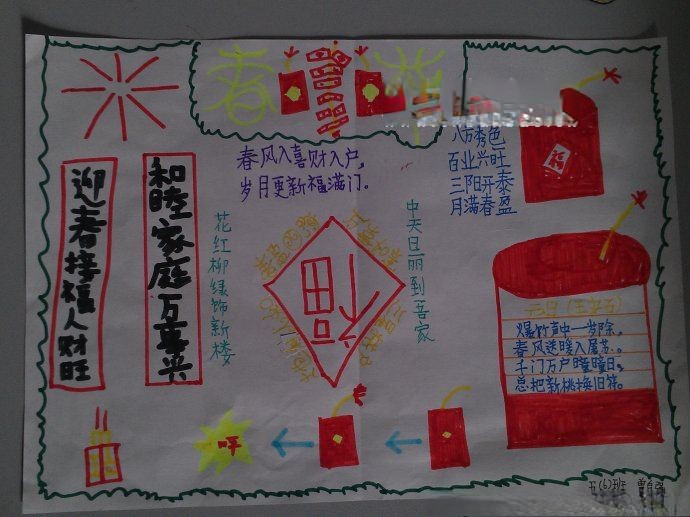 春
春风入喜财入户，
岁月更新福满门。
八方秀色
百业兴旺
三阳开泰
月满春盈
迎春接福人财旺
和睦家庭万事兴
花红柳绿饰新楼
中天日丽到吾家
福
元日（王安石）
爆竹声中一岁除，
春风送暖入屠苏。
千门万户曈曈日，
总把新桃换旧符。
呯
五(6)班